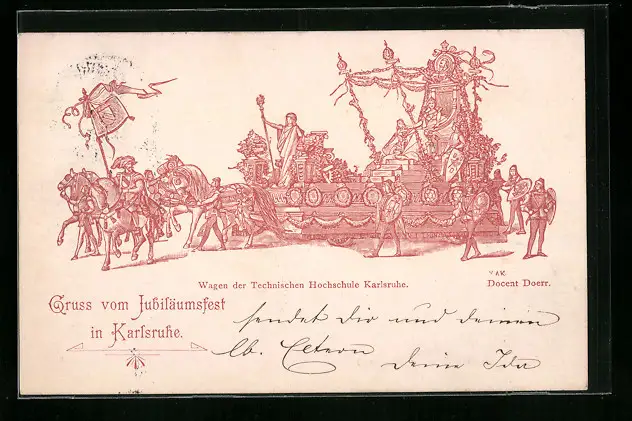 Wagen der Technischen Hochschule Karlsruhe.
Docent Doerr.
Gruss vom Jubiläumsfest
in Karlsruhe.
sendet Dir und deinen
lb. Eltern
deine Ida